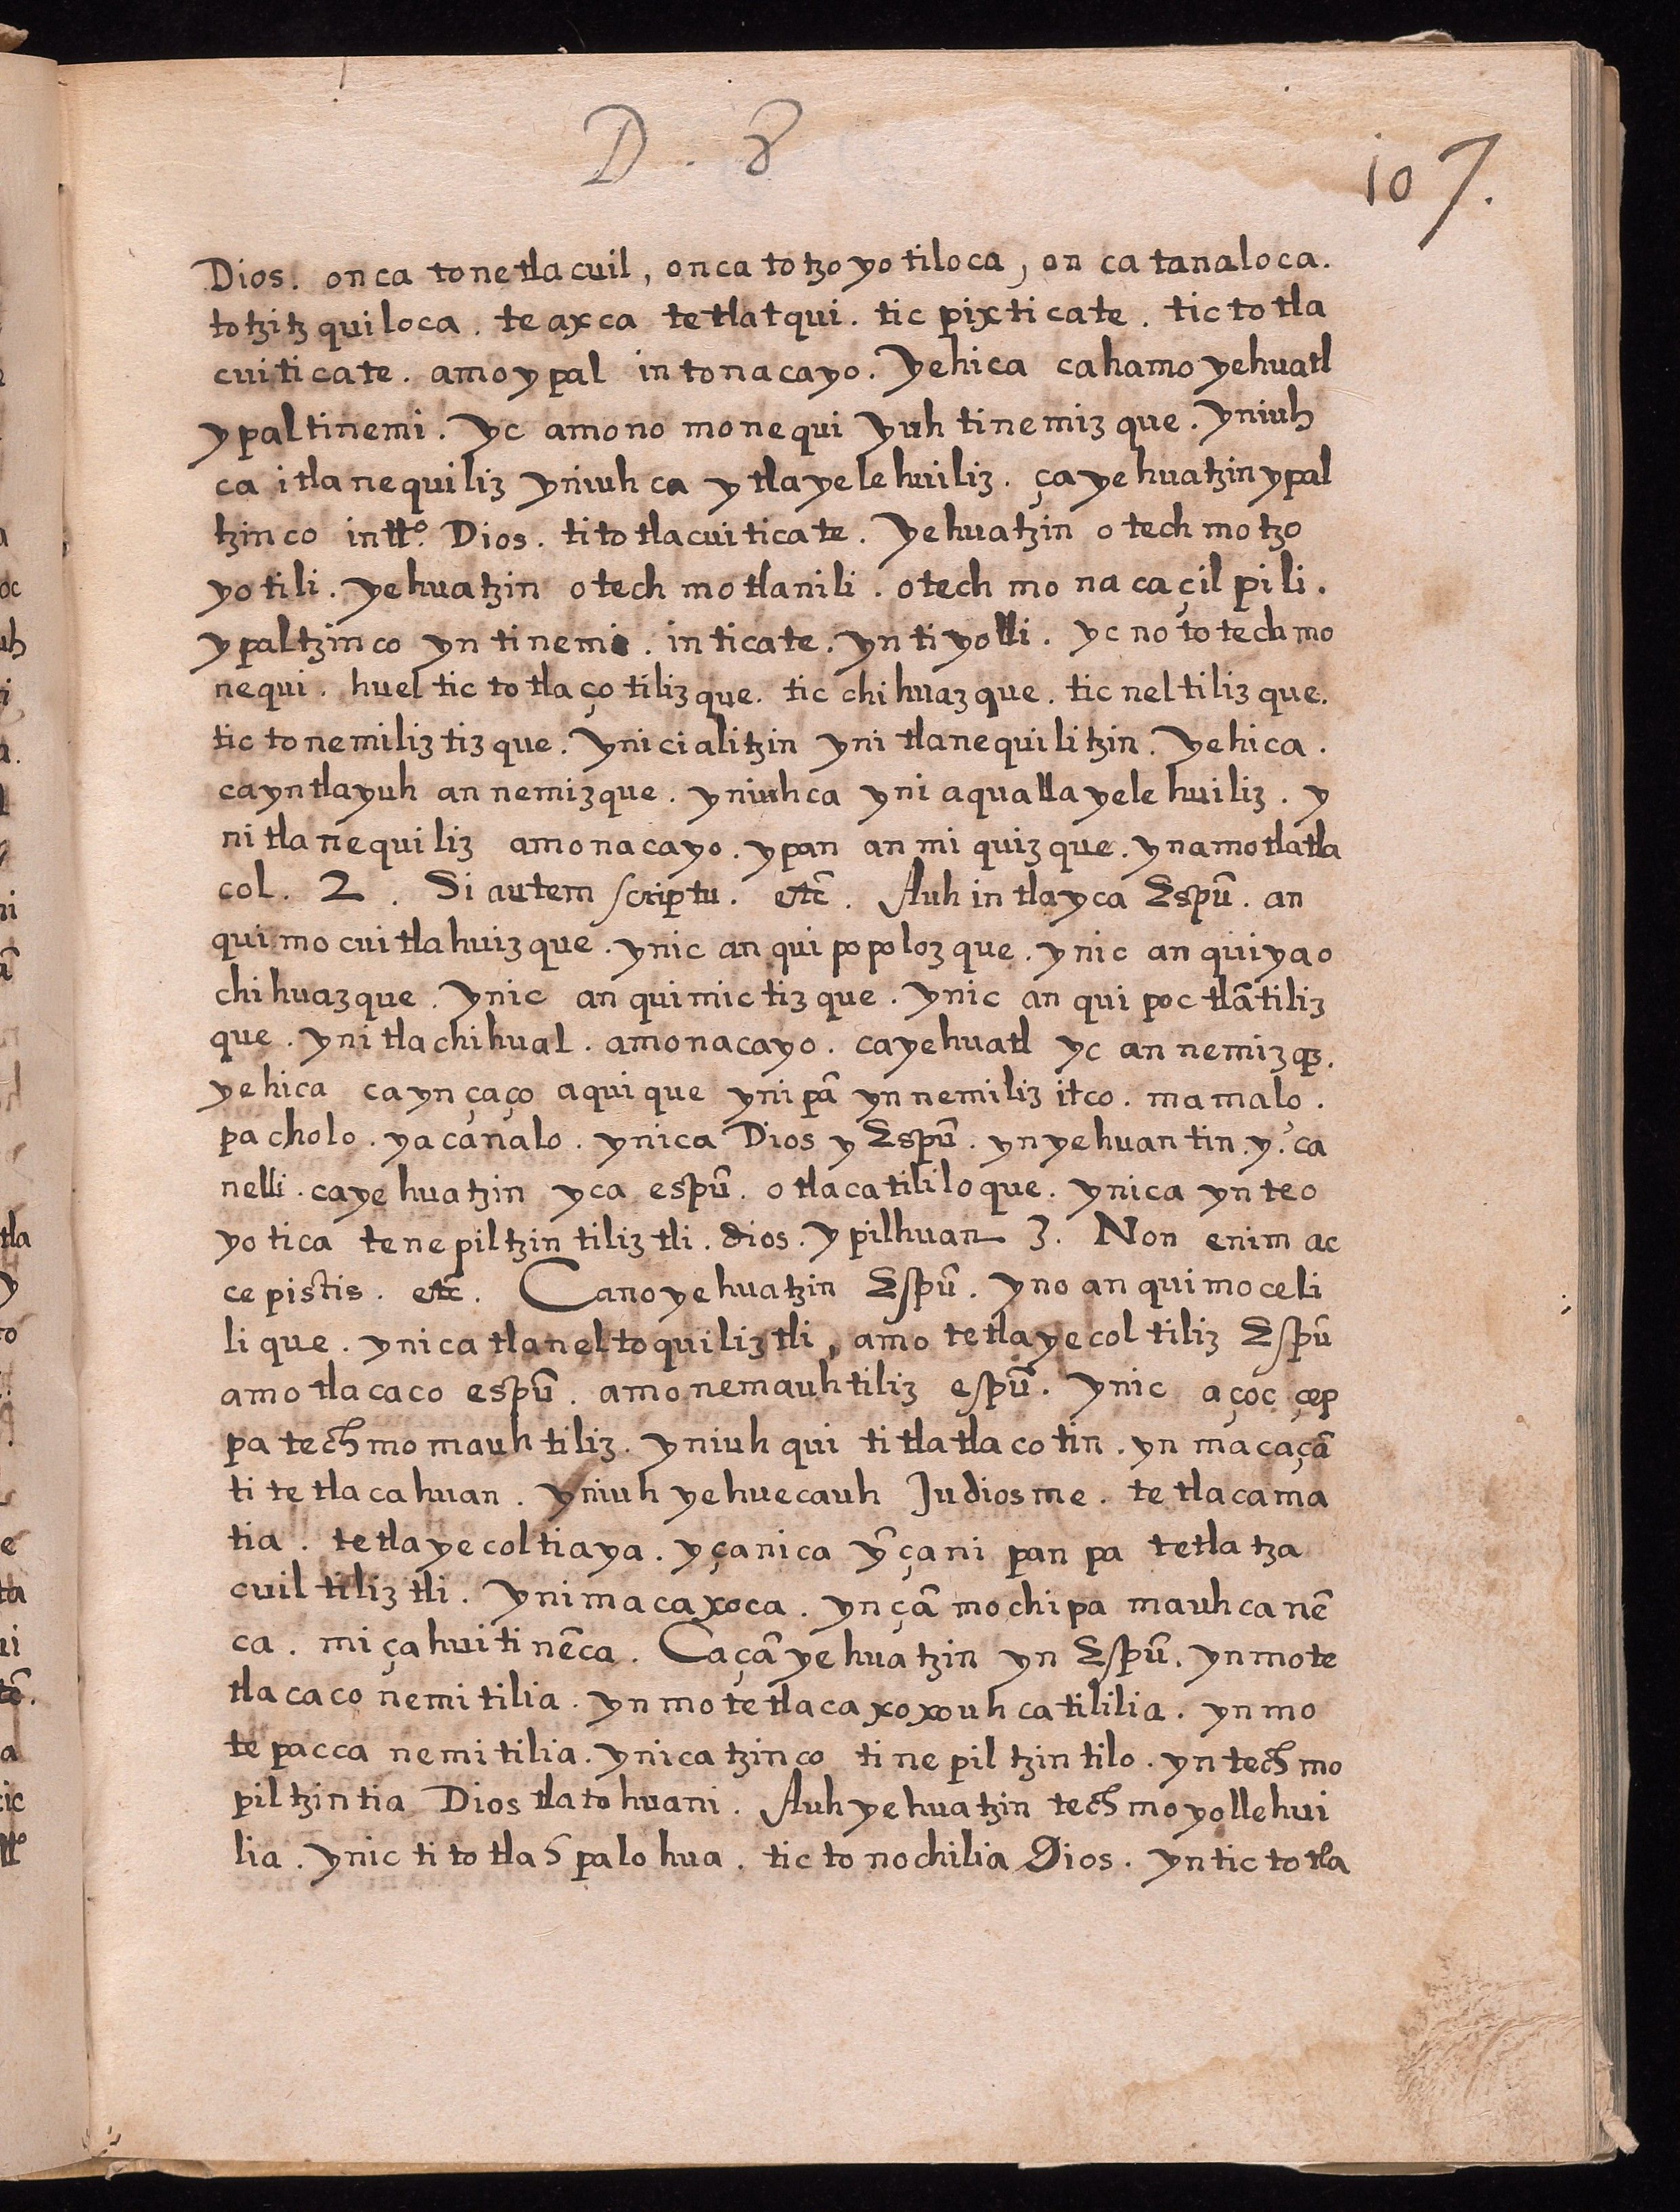 D. 8
107.
Dios. onca tonetlacuil, onca totzoyotiloca, on ca tanaloca.
totzitzquiloca. te axca tetlatqui. tic pixticate. tic totla
cuiticate. amo ypal in tonacayo. Yehica cahamo yehuatl
ypaltinemi. Yc amono monequi yuh tinemizque. yniuh
ca itlanequiliz yniuh ca ytlayelehuiliz. ça yehuatzin ypal
tzinco intt.º Dios. titotlacuiticate. Yehuatzin otechmotzo
yotili. yehuatzin otech motlanili. otech mo nacaçilpili.
ypaltzinco yn tinemi. in ticate. yn tiyolli. yc no totech mo
nequi. huel tic totlaçotilizque. tic chihuazque. tic neltilizque.
tic tonemiliztizque. ynicialitzin yni tlanequilitzin. Yehica.
cayntlayuh annemizque. yniuhca yni aquallayelehuiliz. y
ni tlanequiliz amonacayo. ypan anmiquizque. ynamotlatla
col. 2. Si autem scriptu. etc̃. Auh intlayca Espũ. an
quimocuitlahuizque. ynic anquipopolozque. ynic anquiyao
chihuazque. ynic anquimictizque. ynic an qui poctlãtiliz
que. yni tlachihual. amonacayo. cayehuatl yc annemizq̃.
yehica caynçaço aquique ynipã ynnemiliz itco. mamalo.
pacholo. yacanalo. ynica Dios y Espũ. ynyehuantin. y. ca
nelli. cayehuatzin yca espũ. otlacatililoque. ynica ynteo
yotica tenepiltzintiliztli. dios. ypilhuan 3. Non enim ac
cepistis. etc̃. Canoyehuatzin Espũ. yno anquimoceli
lique. ynica tlaneltoquiliztli, amo tetlayecoltiliz Espũ
amo tlacaco espũ. amo nemauhtiliz espũ. ynic açoc çep
pa techmomauhtiliz. yniuhqui titlatlacotin. yn macaçã
titetlacahuan. yniuh yehuecauh Judiosme. tetlacama
tia. tetlayecoltiaya. yçanica ỹçani panpa tetlatza
cuiltiliztli. ynimacaxoca. ynçã mochipa mauhcanẽ
ca. miçahuitinẽca. Caçã yehuatzin yn Espũ. ynmote
tlacaconemitilia. ynmotetlacaxoxouhcatililia. yn mo
tepacca nemitilia. ynicatzinco tinepiltzintilo. yn techmo
piltzintia Dios tlatohuani. Auh yehuatzin techmoyollehui
lia. ynic titotlahpalohua. tic tonochilia Dios. yntictotla